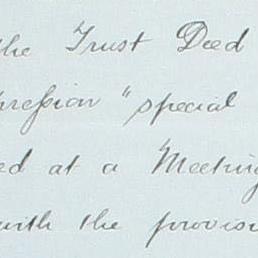 the Trust Deed
pression "special
ed at a Meeting
with the provisi